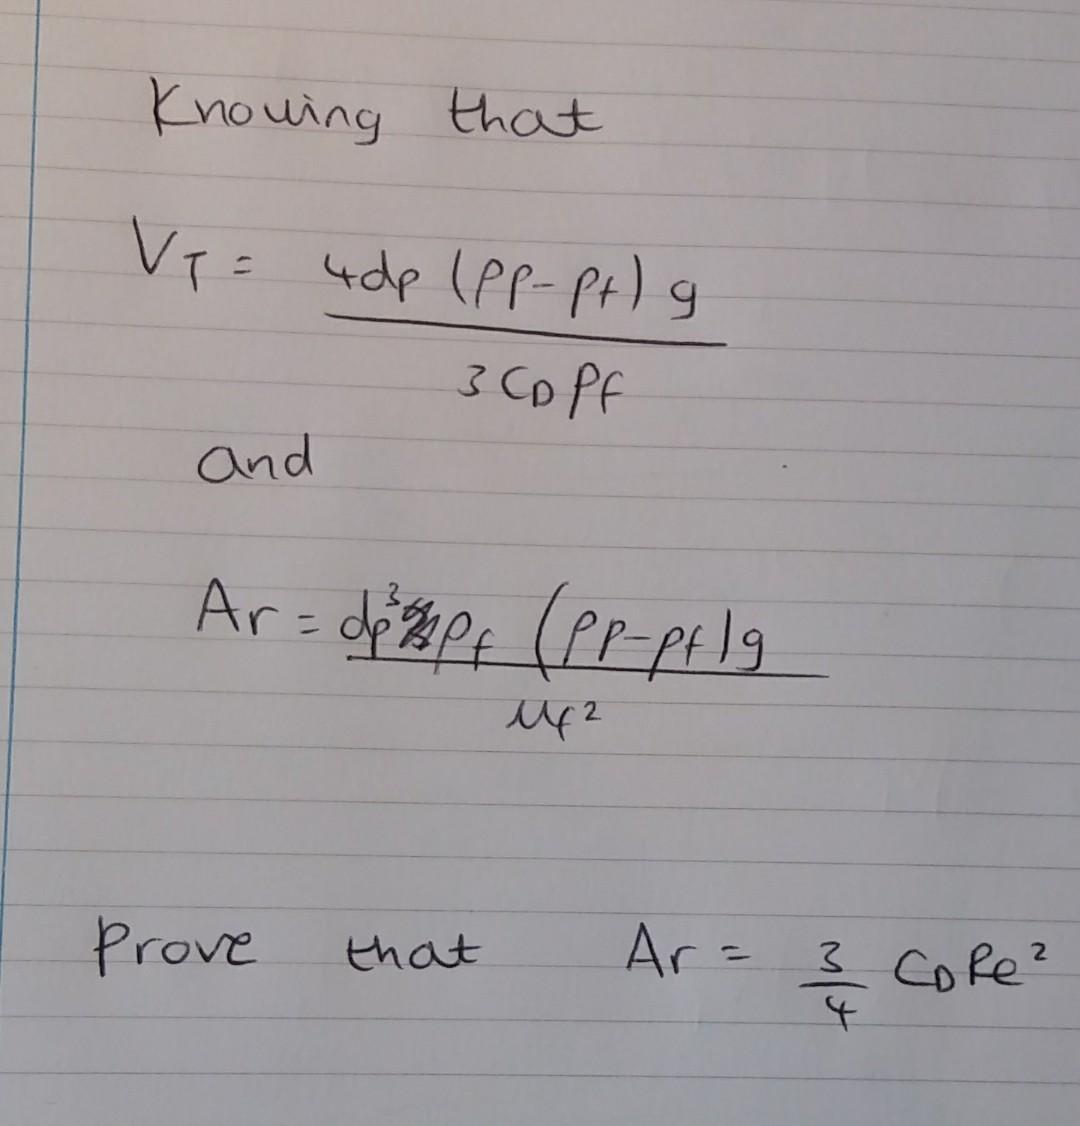 Knowing that
VT = 4dp (ρp-ρf) g
3 CD ρf
and
Ar = dp³ ρf (ρp-ρf)g
μf²
Prove that Ar = 3/4 CD Re²